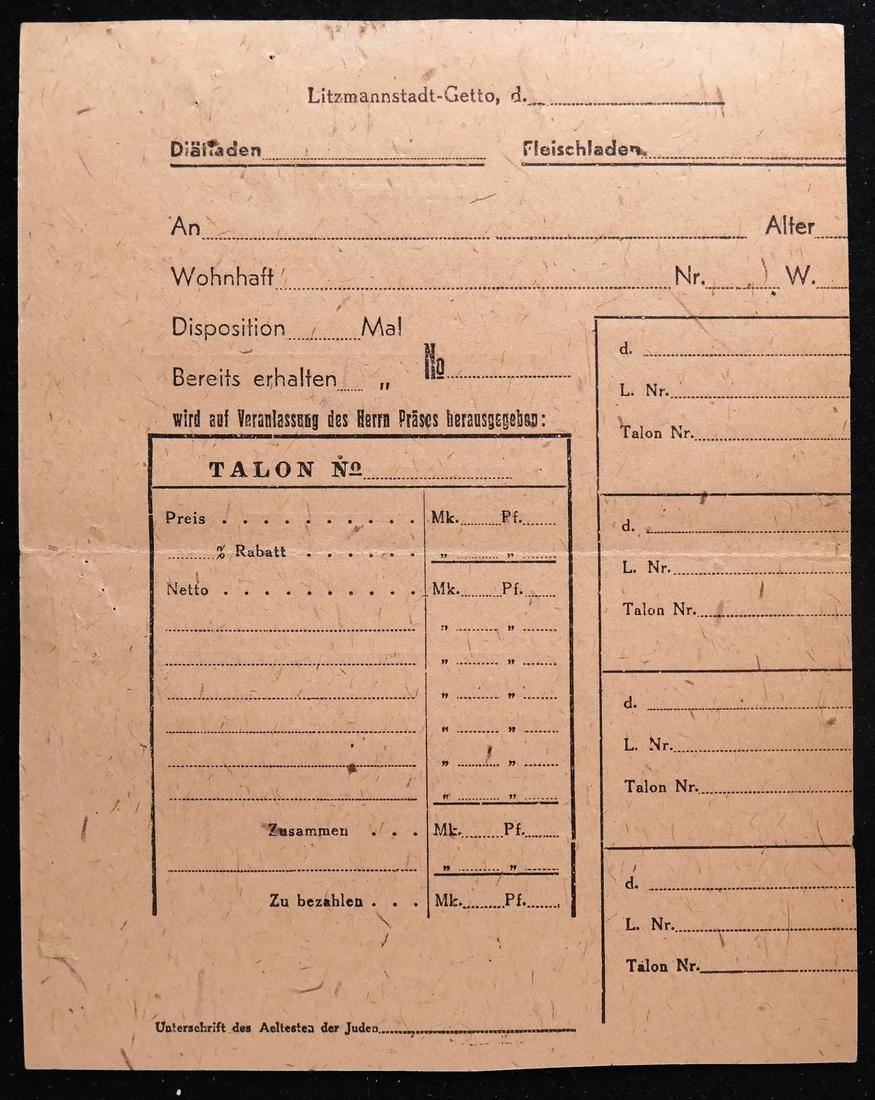 Litzmannstadt-Getto, d.
Diätladen Fleischladen
An Alter
Wohnhaft Nr. W.
Disposition Mal
Bereits erhalten „ No
wird auf Veranlassung des Herrn Präses herausgegeben:
TALON No
Preis . . . . . . . . . . Mk. Pf.
% Rabatt . . . . . . „ „
Netto . . . . . . . . . . Mk. Pf.
„ „
„ „
„ „
„ „
„ „
„ „
Zusammen . . . Mk. Pf.
„ „
Zu bezahlen . . . Mk. Pf.
Unterschrift des Aeltesten der Juden
d.
L. Nr.
Talon Nr.
d.
L. Nr.
Talon Nr.
d.
L. Nr.
Talon Nr.
d.
L. Nr.
Talon Nr.